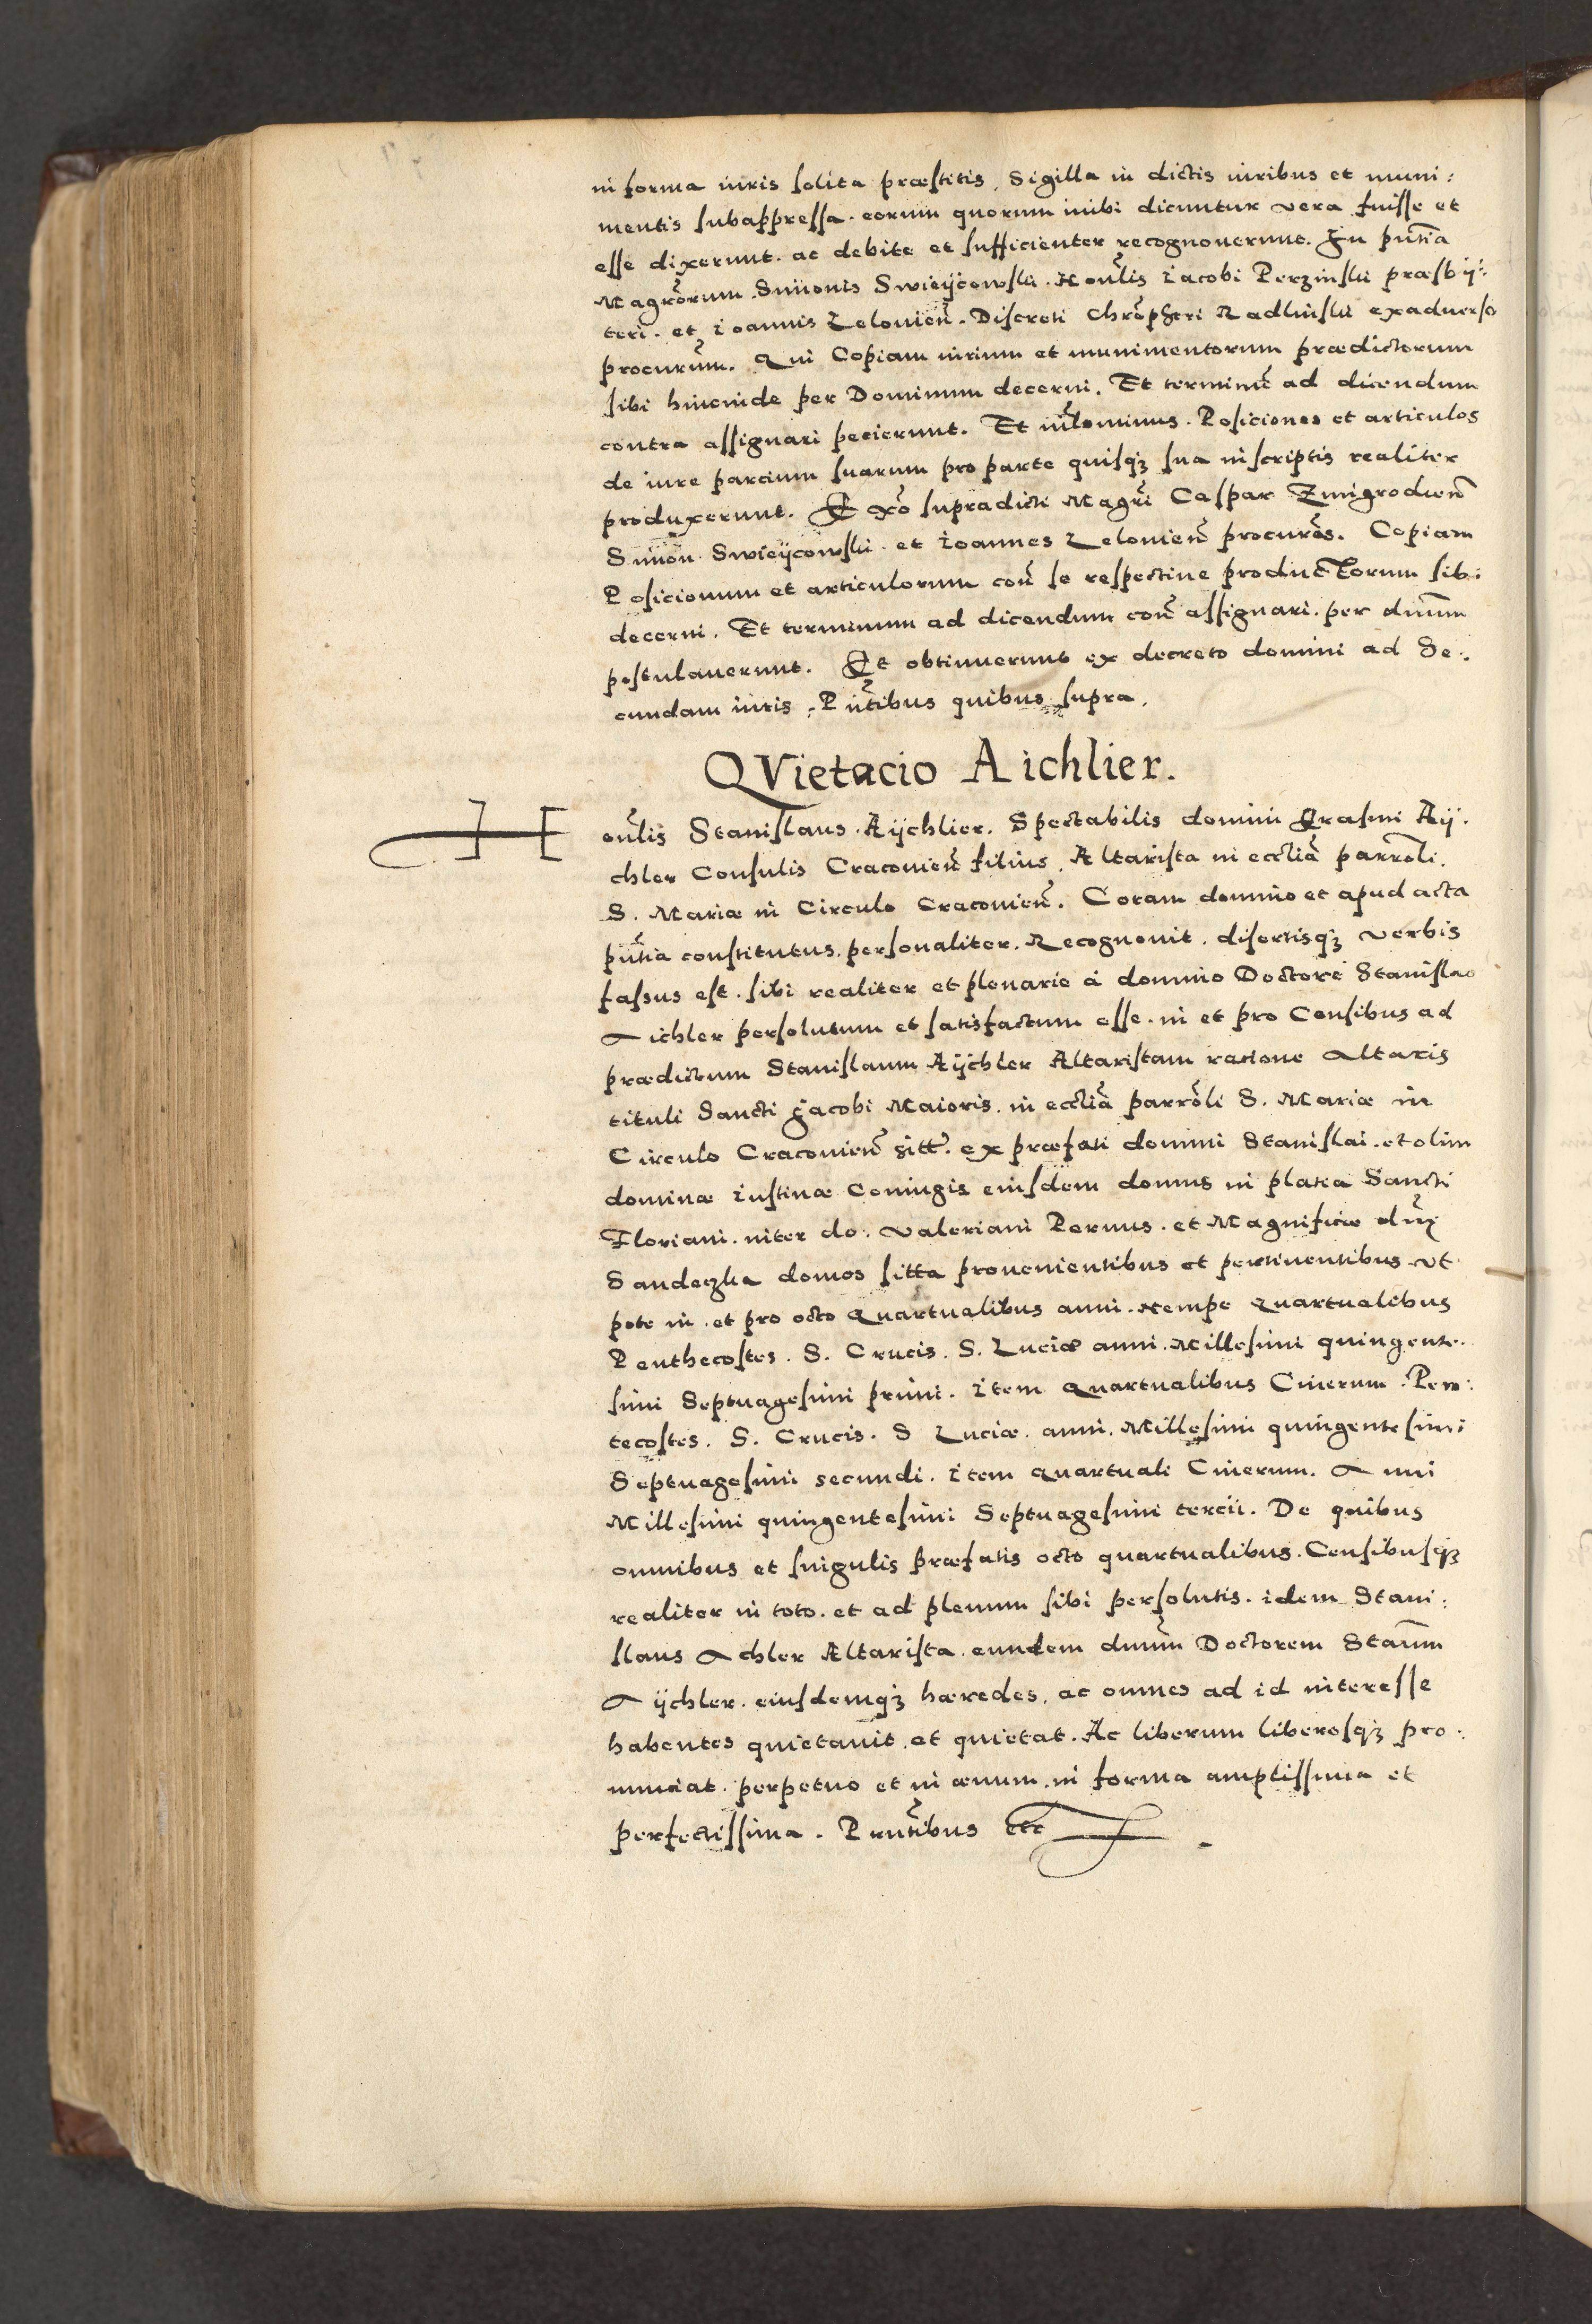 in forma iuris solita præstitis, Sigilla in dictis iuribus et muni:
mentis subappressa. eorum quorum inibi dicuntur vera fuisse et
esse dixerunt. ac debite et sufficienter recognoverunt. In pn̄tia
Magrōrum Simonis Swieÿcowski. Honūlis Iacobi Perzinski præsbÿ:
teri. et Ioannis Leloviēn. Discreti Chrōpheri Radlinski exadverso
procurūm. Qui Copiam iurium et munimentorum prædictorum
sibi hincinde per Dominum decerni. Et terminū ad dicendum
contra assignari pecierunt. Et nihlominus. Posiciones et articulos
de iure parcium suarum pro parte quisqȝ sua in scriptis realiter
produxerunt. Et exō supradicti Magrī Caspar Zmigrodieñ
Simon Swieÿcowski. et Ioannes Lelovieñ procurēs. Copiam
Posicionum et articulorum coñ se respective productorum sibi
decerni. Et terminum ad dicendum coñ assignari. per dnūm
postulaverunt. Et obtinuerunt ex decreto domini ad Se:
cundam iuris. Pn̄tibus quibus supra.
QVietacio Aichlier.
H
onūlis Stanislaus. Aÿchlier. Spectabilis domini Erasmi Aÿ.
chler Consulis Cracovieñ filius. Altarista in eccliā parrōli.
S. Mariæ in Circulo Cracovieñ. Coram domino et apud acta
pn̄tia constitutus. personaliter. Recognovit. disertisqȝ verbis
fassus est. sibi realiter et plenarie à domino Doctore Stanislao
Aichler persolutum et satisfactum esse. in et pro Censibus ad
prædictum Stanislaum Aÿchler Altaristam ratione altaris
tituli Sancti Jacobi Maioris. in eccliā parrōli S. Mariæ in
Circulo Cracovieñ sitt̄. ex præfati domini Stanislai. et olim
dominæ Iustinæ Coniugis eiusdem domus in platea Sancti
Floriani. inter do: Valeriani Pernus. et Magnificæ dn̄æ
Sandeczka domos sitta provenientibus et pertinentibus. vt
pote in. et pro octo Quartualibus anni. Nempe Quartualibus
Penthecostes. S. Crucis. S. Luciæ anni. Millesimi quingente.
simi Septuagesimi primi. Item Quartualibus Cinerum. Pen:
tecostes. S. Crucis. S Luciæ. anni. Millesimi quingentesimi
Septuagesimi secundi. Item Quartuali Cinerum. Anni
Millesimi quingentesimi Septuagesimi tercii. De quibus
omnibus et singulis præfatis octo quartualibus. Censibusqȝ
realiter in toto. et ad plenum sibi persolutis. idem Stani:
slaus Achler Altarista. eundem dnūm Doctorem Stanūm
Aÿchler. eiusdemqȝ hæredes. ac omnes ad id interesse
habentes quietavit. et quietat. Ac liberum liberosqȝ pro:
nunciat. perpetuo et in ævum. in forma amplissima et
perfectissima. Prn̄tibus etc